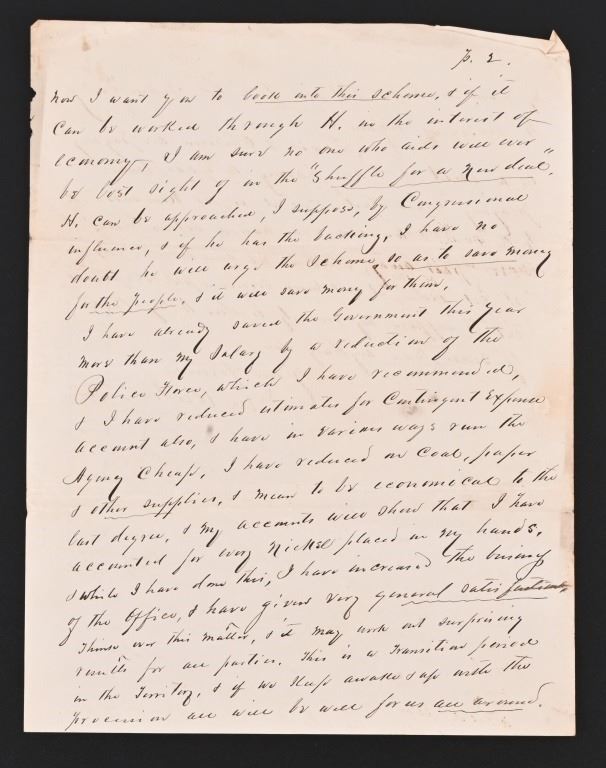 p. 2.
now I want you to look into this scheme, & if it
can be worked through H. in the interest of
economy, I am sure no one who aids will ever
be lost sight of in the "Shuffle for a new deal",
H. can be approached, I suppose, by Congressional
influence, & if he has the backing, I have no
doubt he will urge the scheme so as to save money
for the people, & it will save money for them.
I have already saved the Government this year
more than my Salary by a reduction of the
Police Force, which I have recommended,
& I have reduced estimates for Contingent Expense
account also, & have in various ways run the
Agency Cheap, I have reduced on Coal, paper
& other supplies, & mean to be economical to the
last degree, & my accounts will show that I have
accounted for every Nickel placed in my hands,
& while I have done this, I have increased the business
of the Office, & have given very general satisfaction,
Think over this matter, & it may work out surprising
results for all parties. This is a Transition period
in the Territory, & if we keep awake & up with the
procession all will be well for us all around.